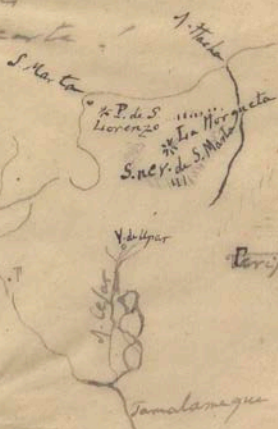 S. Marta
P. de S
Lorenzo
La Horqueta
S. nev. de S. Marta
V. de Upar
R. Cesar
Tamalameque